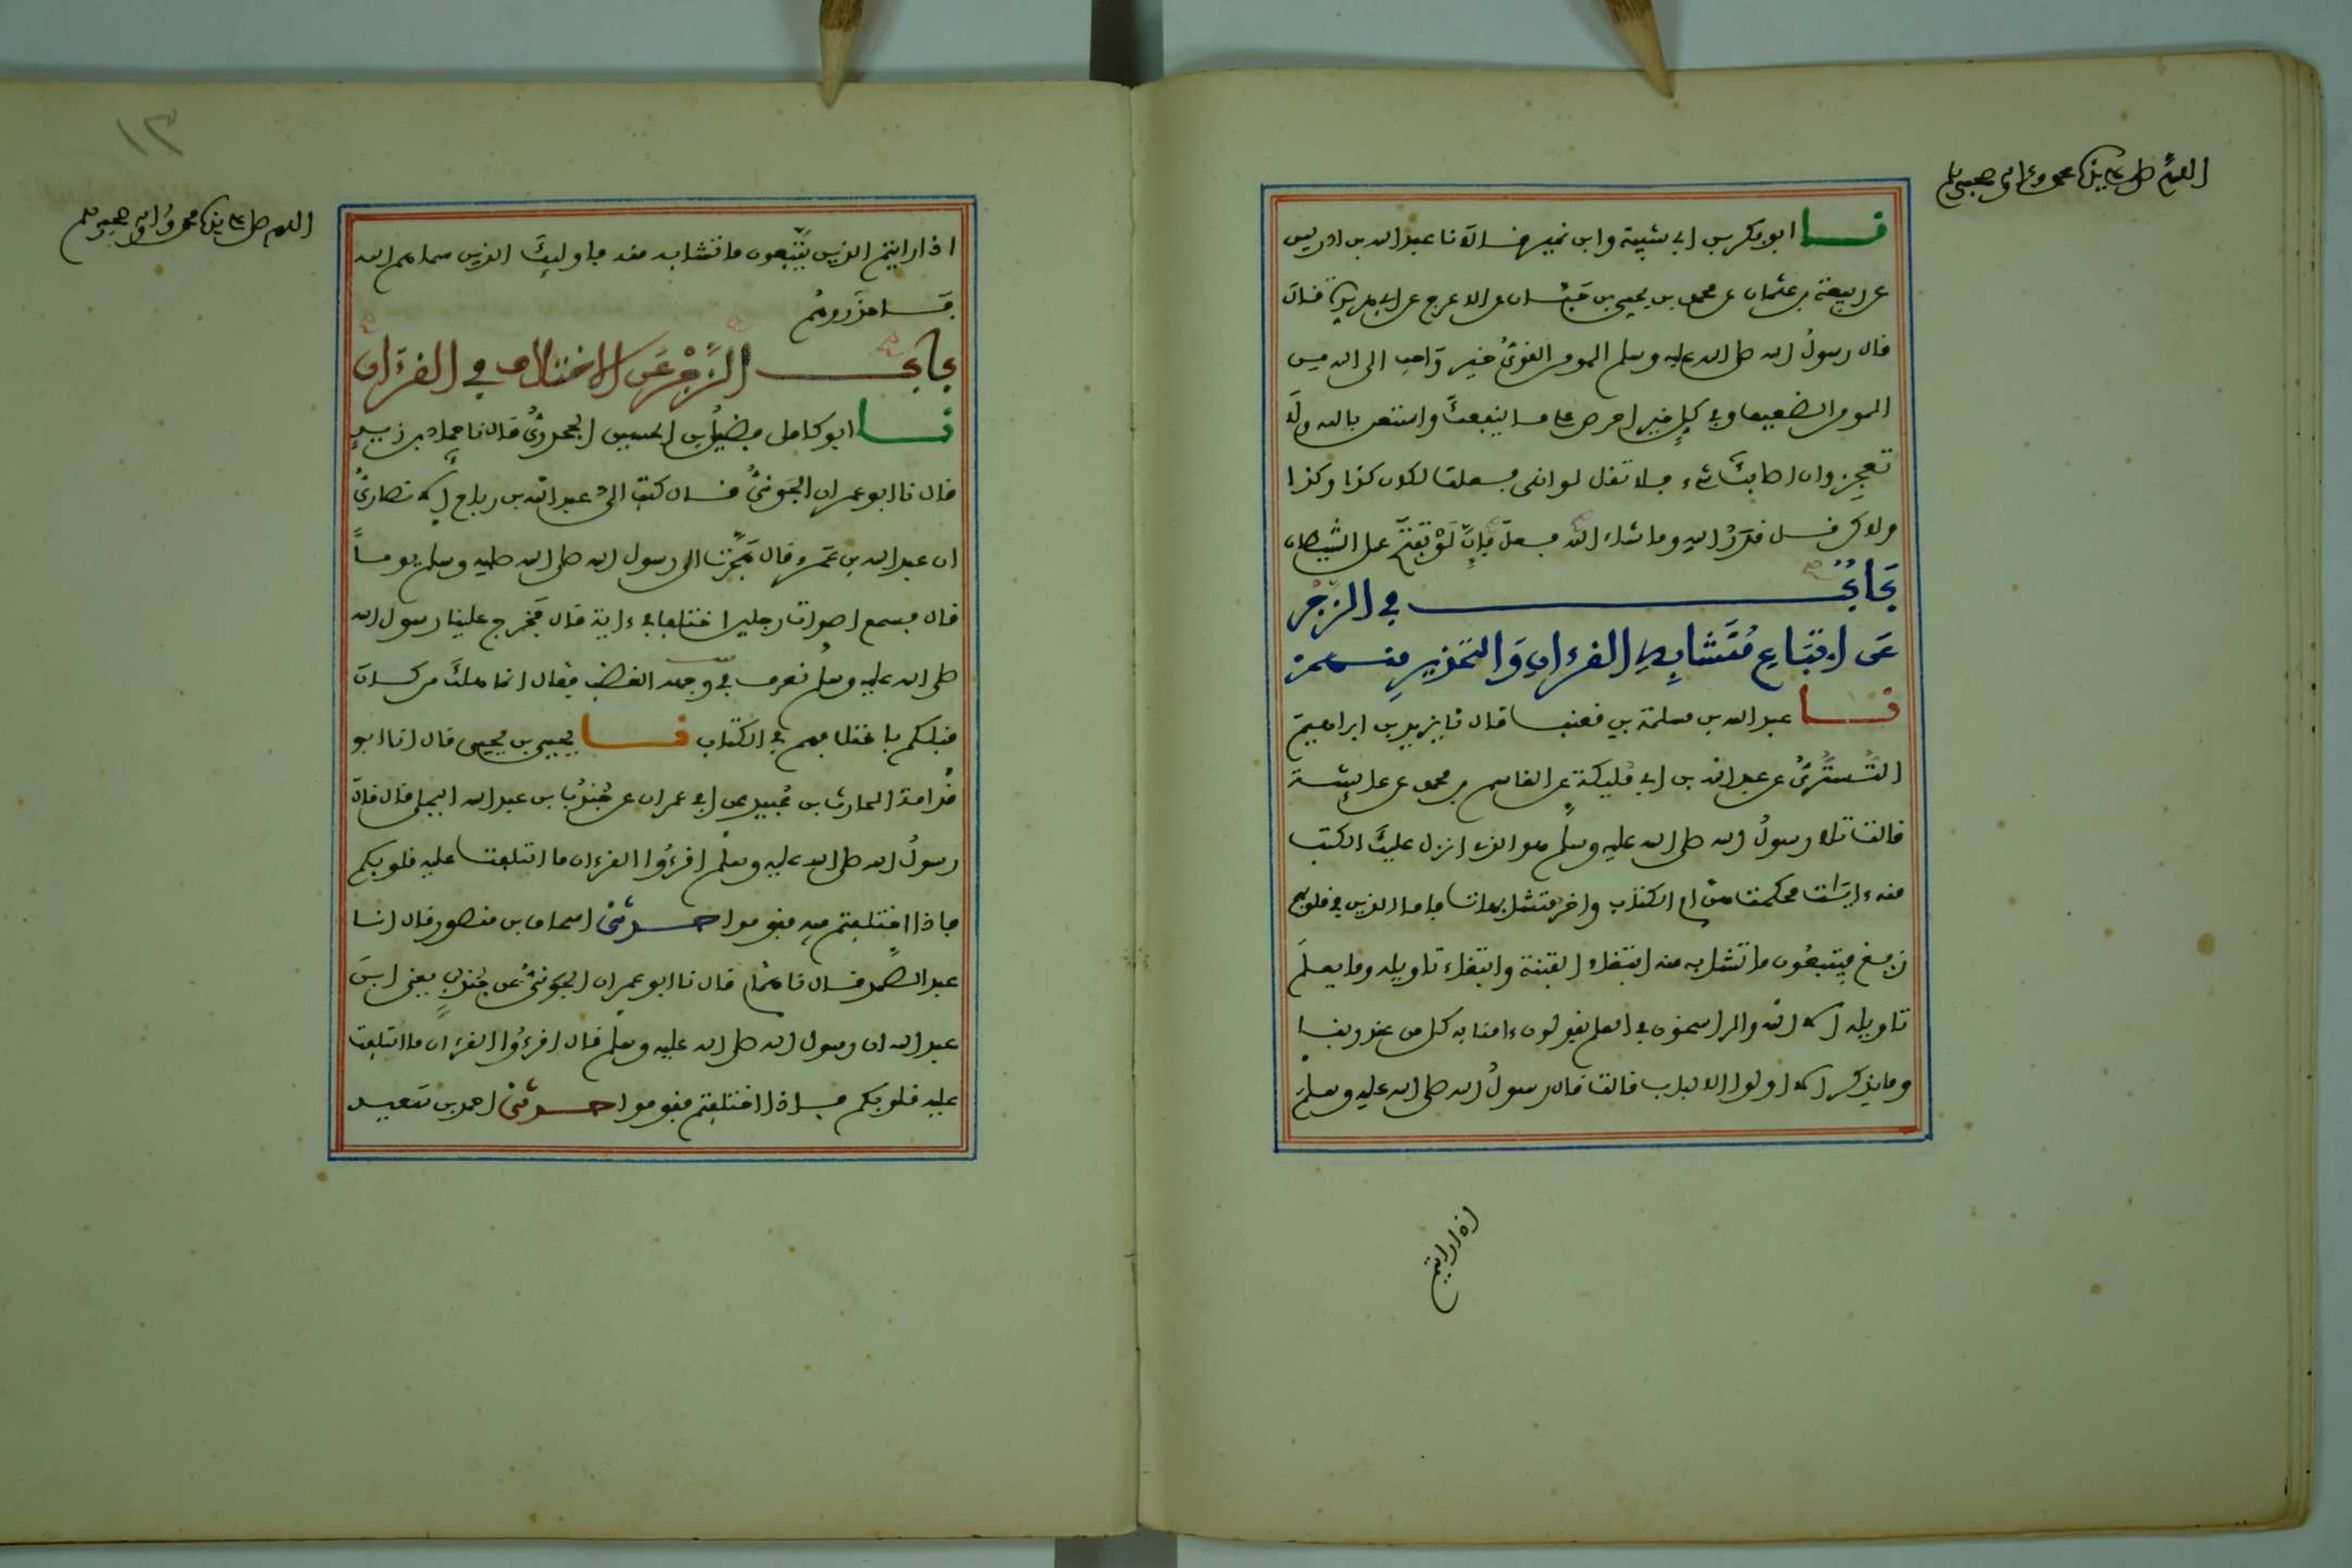 اللهم صل على سيدنا محمد وعلى ءاله وصحبه وسلم
نا ابو بكر بن ابي شيبة وابن نمير قالا نا عبد الله بن ادريس
عن ربيعة بن عثمان عن محمد بن يحيى بن حَبَّان عن الاعرج عن ابي هريرة قال
قال رسولُ الله صلى الله عليه وسلم المومن القويُّ خير وَاحب الى الله من
المومن الضعيف وفي كلٍ خير احرص على ما ينفعكَ واستعن بالله ولَا
تعجِز وان اصابكَ شيء فلا تقل لو اني فعلت لكان كذا وكذا
ولاكن قل قدَرُ اللهِ وما شاء الله فعلَ فإنّ لَوْ تفتَح عمل الشيطان
بَابٌ في الزَّجْر
عَن اتِّبَاعِ مُتَشَابِهِ القرءانِ وَالتحْذيرِ منهم
نا عبد الله بن مسلمة بن قعنب قال نا يزيد بن ابراهيم
التُّسْتُرِيُّ عن عبد الله بن ابي مُليكة عن القاسم بن محمد عن عايشة
قالت تلا رسولُ الله صلى الله عليه وسلم هو الذي انزل عليكَ الكتب
منه ءايَات محكمت هن ام الكتاب واخر متشابهات فاما الذين في قلوبهم
زيغ فيتبعُون ما تشابه منه ابتغاء الفتنة وابتغاء تاويله وما يعلَم
تاويله إلا الله والراسخون في العلم يقولون ءامنا به كل من عند ربنا
وما يذكر إلا اولوا الالباب قالت قال رسولُ الله صلى الله عليه وسلم
اذا رايتم
١٣
اللهم صل على سيدنا محمد وءاله وصحبه وسلم
اذا رايتم الذين يَتَّبِعون ما تشابه منه فاوليكَ الذين سماهم الله
فَاحذَروهُم
بابُ الزَّجْرِ عَن الاختلاف في القرءان
نا ابو كامل فضيلُ بن الحسين الجحدريُّ قال نا حماد بن زيدٍ
قال نا ابو عمران الجَونيُّ قال كتب اليَّ عبد الله بن رباح الانصاريُّ
ان عبد الله بن عَمرو قال هَجَّرْتُ الى رسول الله صلى الله عليه وسلم يوماً
قال فسمع اصوات رجلين اختلفا في ءاية قال فخرج علينا رسول الله
صلى الله عليه وسلم نعرف في وجهه الغضب فقال انما هلكَ من كان
قبلكم باختلافهم في الكتاب نا يحيى بن يحيى قال انا ابو
قُدامة الحارث بن عُبيد عن ابي عمران عن جُندُب بن عبد الله البجلي قال قال
رسولُ الله صلى الله عليه وسلم اقرءُوا القرءان ما ايتلفت عليه قلوبكم
فاذا اختلفتم فيه فقوموا حدثني اسحاق بن منصور قال انا
عبد الصَّمد قال نا همَّام قال نا ابو عمران الجَونيُّ عن جُندُبٍ يعني ابنَ
عبد الله ان رسول الله صلى الله عليه وسلم قال اقرءُوا القرءان ما ايتلفت
عليه قلوبكم فاذا اختلفتم فقوموا حدثني احمد بن سَعيد